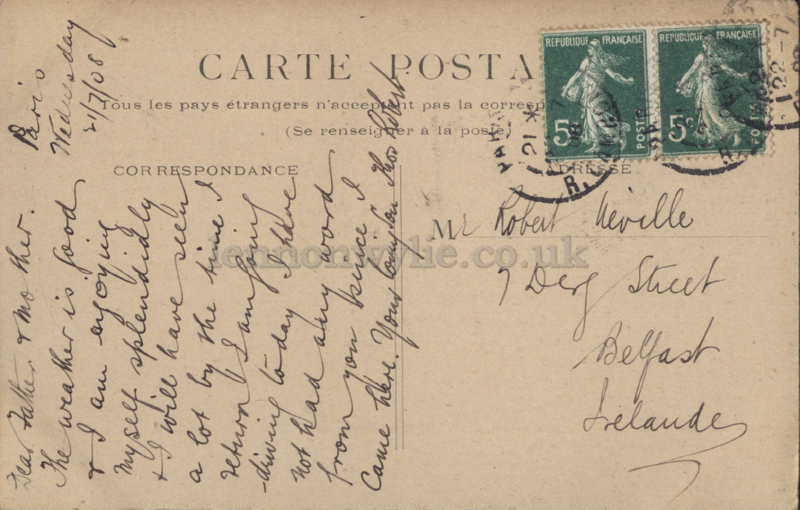 CARTE POSTA
Tous les pays étrangers n'acceptent pas la corresp
(Se renseigner à la poste
CORRESPONDANCE
ADRESSE
REPUBLIQUE FRANÇAISE
5c
POSTES
REPUBLIQUE FRANÇAISE
5c
POSTES
PARIS
21 * 7
22-7
R.
Mr Robert Neville
7 Derg Street
Belfast
Irelande
Paris
Wednesday
21/7/08
Dear Father & mother.
The weather is good
& I am enjoying
myself splendidly
& I will have seen
a lot by the time I
return I am going
driving today I have
not had any word
from you since I
came here. Your loving Son Robert
lennonwylie.co.uk